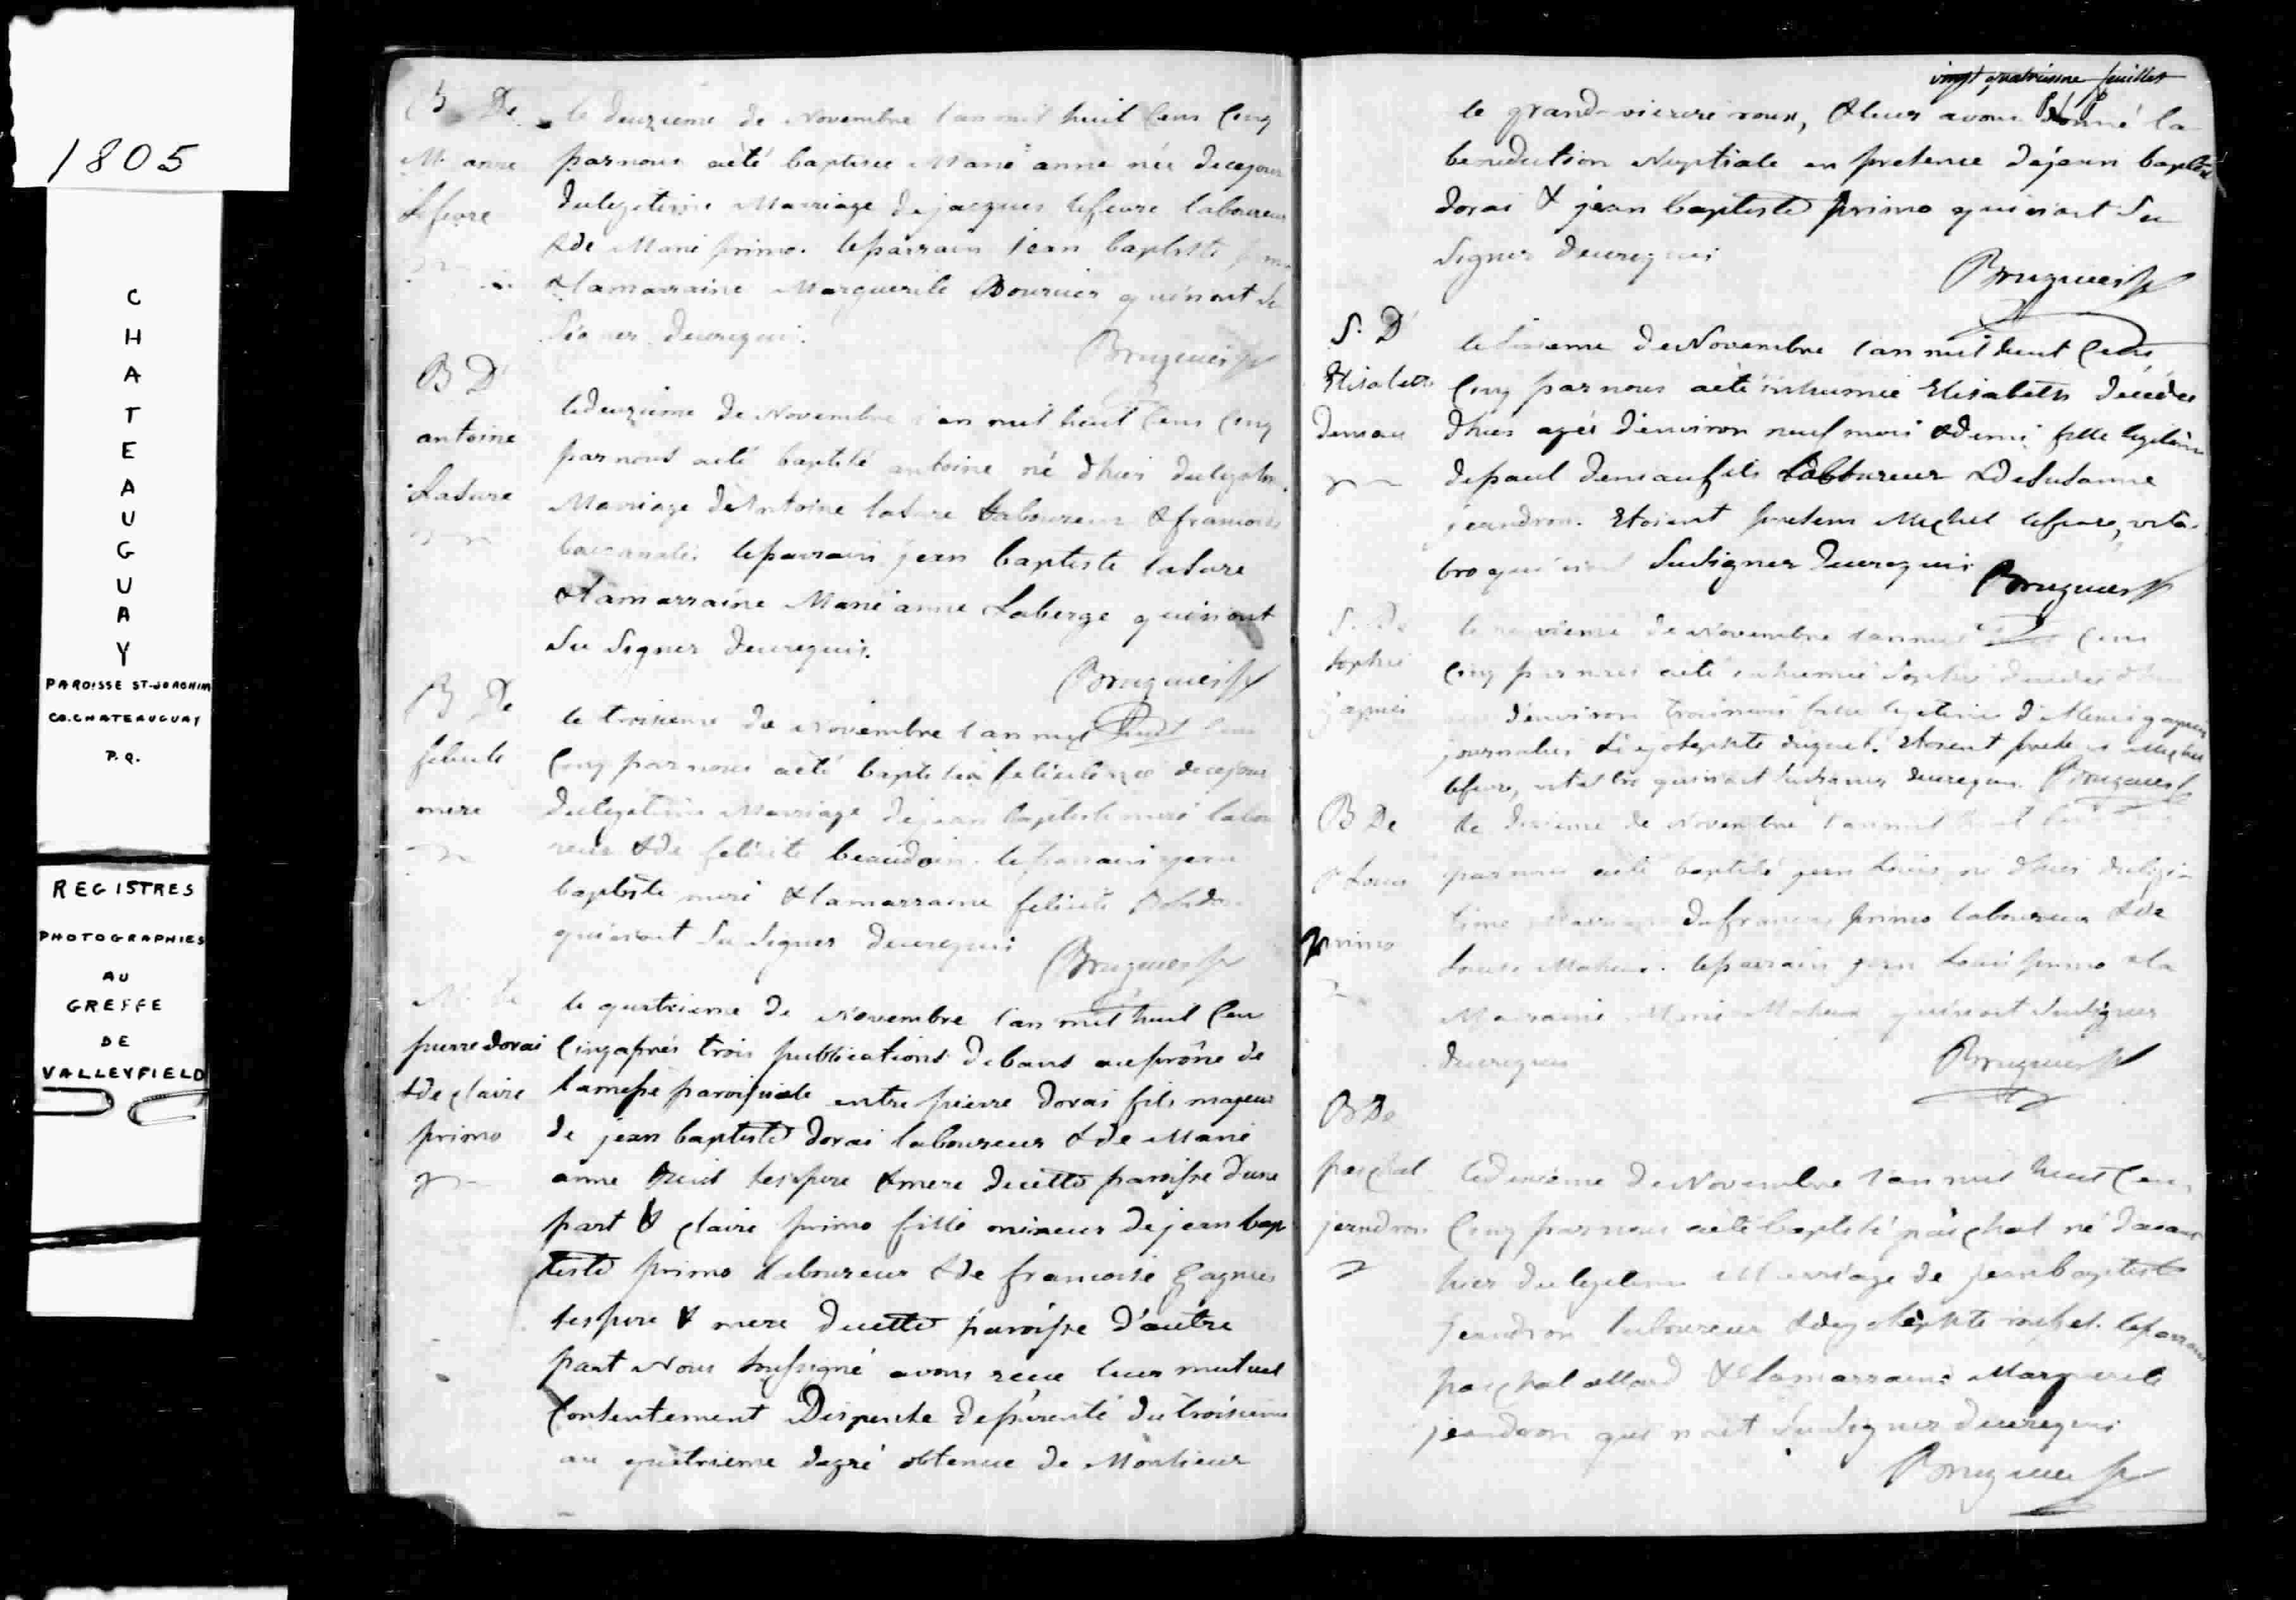 1805
CHATEAUGUAY
PAROISSE ST-JOACHIM
CO. CHATEAUGUAY
P.Q.
REGISTRES
PHOTOGRAPHIES
AU
GREFFE
DE
VALLEYFIELD
B De
M. anne
Lefevre
le deuzieme de Novembre l'an mil huit Cens Cinq
par nous aété baptisee Marie anne née de cejour
dulegitime Marriage de jacques lefevre laboureur
&de Marie primo. leparrain jean baptiste
&lamarraine Marguerite Bourcier quin'ont Su
Signer decerequis.
Bruguier ptr
B D'
antoine
Lasure
ledeuzieme de Novembre l'an mil huit Cens Cinq
par nous aété baptisé antoine né d'hier dulegitime
Marriage de Antoine lasure laboureur & francoise
leparrain jean baptiste lasure
&lamarraine Marie anne Laberge quin'ont
Su Signer decerequis.
Bruguier ptr
B De
felicite
mere
le troisieme de Novembre l'an mil huit Cens
Cinq par nous aété baptisée felicite née decejour
dulegitime Marriage dejean baptiste meré labou
reur &de felicité beaudoin. leparrain jean
baptiste meré &lamarraine felicité
quin'ont Su Signer decerequis
Bruguier ptr
M. De
pierre dorai
&de claire
primo
le quatrieme de Novembre l'an mil huit Cens
Cinq aprés trois publications debans auprône de
lamesse paroissiale entre pierre dorai fils majeur
de jean baptiste dorai laboureur &de Marie
anne lespere &mere decette paroisse d'une
part & claire primo fille mineur dejean bap
tiste primo laboureur &de francoise Gagnier
lespere & mere decette paroisse d'autre
part Nous Soussigné avons recu leur mutuel
Consentement Dispense deparenté du troisieme
au quatrieme degré obtenue de Monsieur
vingt quatrieme feuillet
le grand-vicaire roux, &leur avons donné la
benediction Nuptiale en presence dejean baptiste
dorai & jean baptiste primo quin'ont Su
Signer decerequis
Bruguier ptr
S. D'
Elisabeth
demau
le de Novembre l'an mil huit Cens
Cinq par nous aété inhumée Elisabeth décédée
d'hier agée d'environ neuf mois &demi fille legitime
depaul demaufils laboureur &deSusanne
jeandron. Etoient presens Michel lefevre, vita-
bro quin'ont Susigner decerequis
Bruguier ptr
S. De
Sophie
gagnier
le neuvieme de Novembre l'an mil huit Cens
Cinq par nous aété inhumée Sophie décédée d'hier
d'environ trois mois fille legitime d'Alexis gagnier
journalier &dejosephte duquet. Etoient presens Michel
lefevre, vital bro quin'ont Susigner decerequis. Bruguier ptr
B De
j. Louis
primo
le dixieme de Novembre l'an mil huit Cens
par nous aété baptisé jean Louis né d'hier dulegi-
time Marriage defrancois primo laboureur &de
Louise Maheu. leparrain jean Louis primo &la
Marraine Marie Maheu quin'ont Susigner
decerequis
Bruguier ptr
B De
paschal
jeandron
ledixieme de Novembre l'an mil huit Cens
Cinq par nous aété baptisé paschal né d'avant
hier dulegitime Marriage de jean baptiste
jeandron laboureur &dejosephte leparrain
paschal allard &lamarraine Marguerite
jeandron qui n'ont Su Signer decerequis
Bruguier ptr